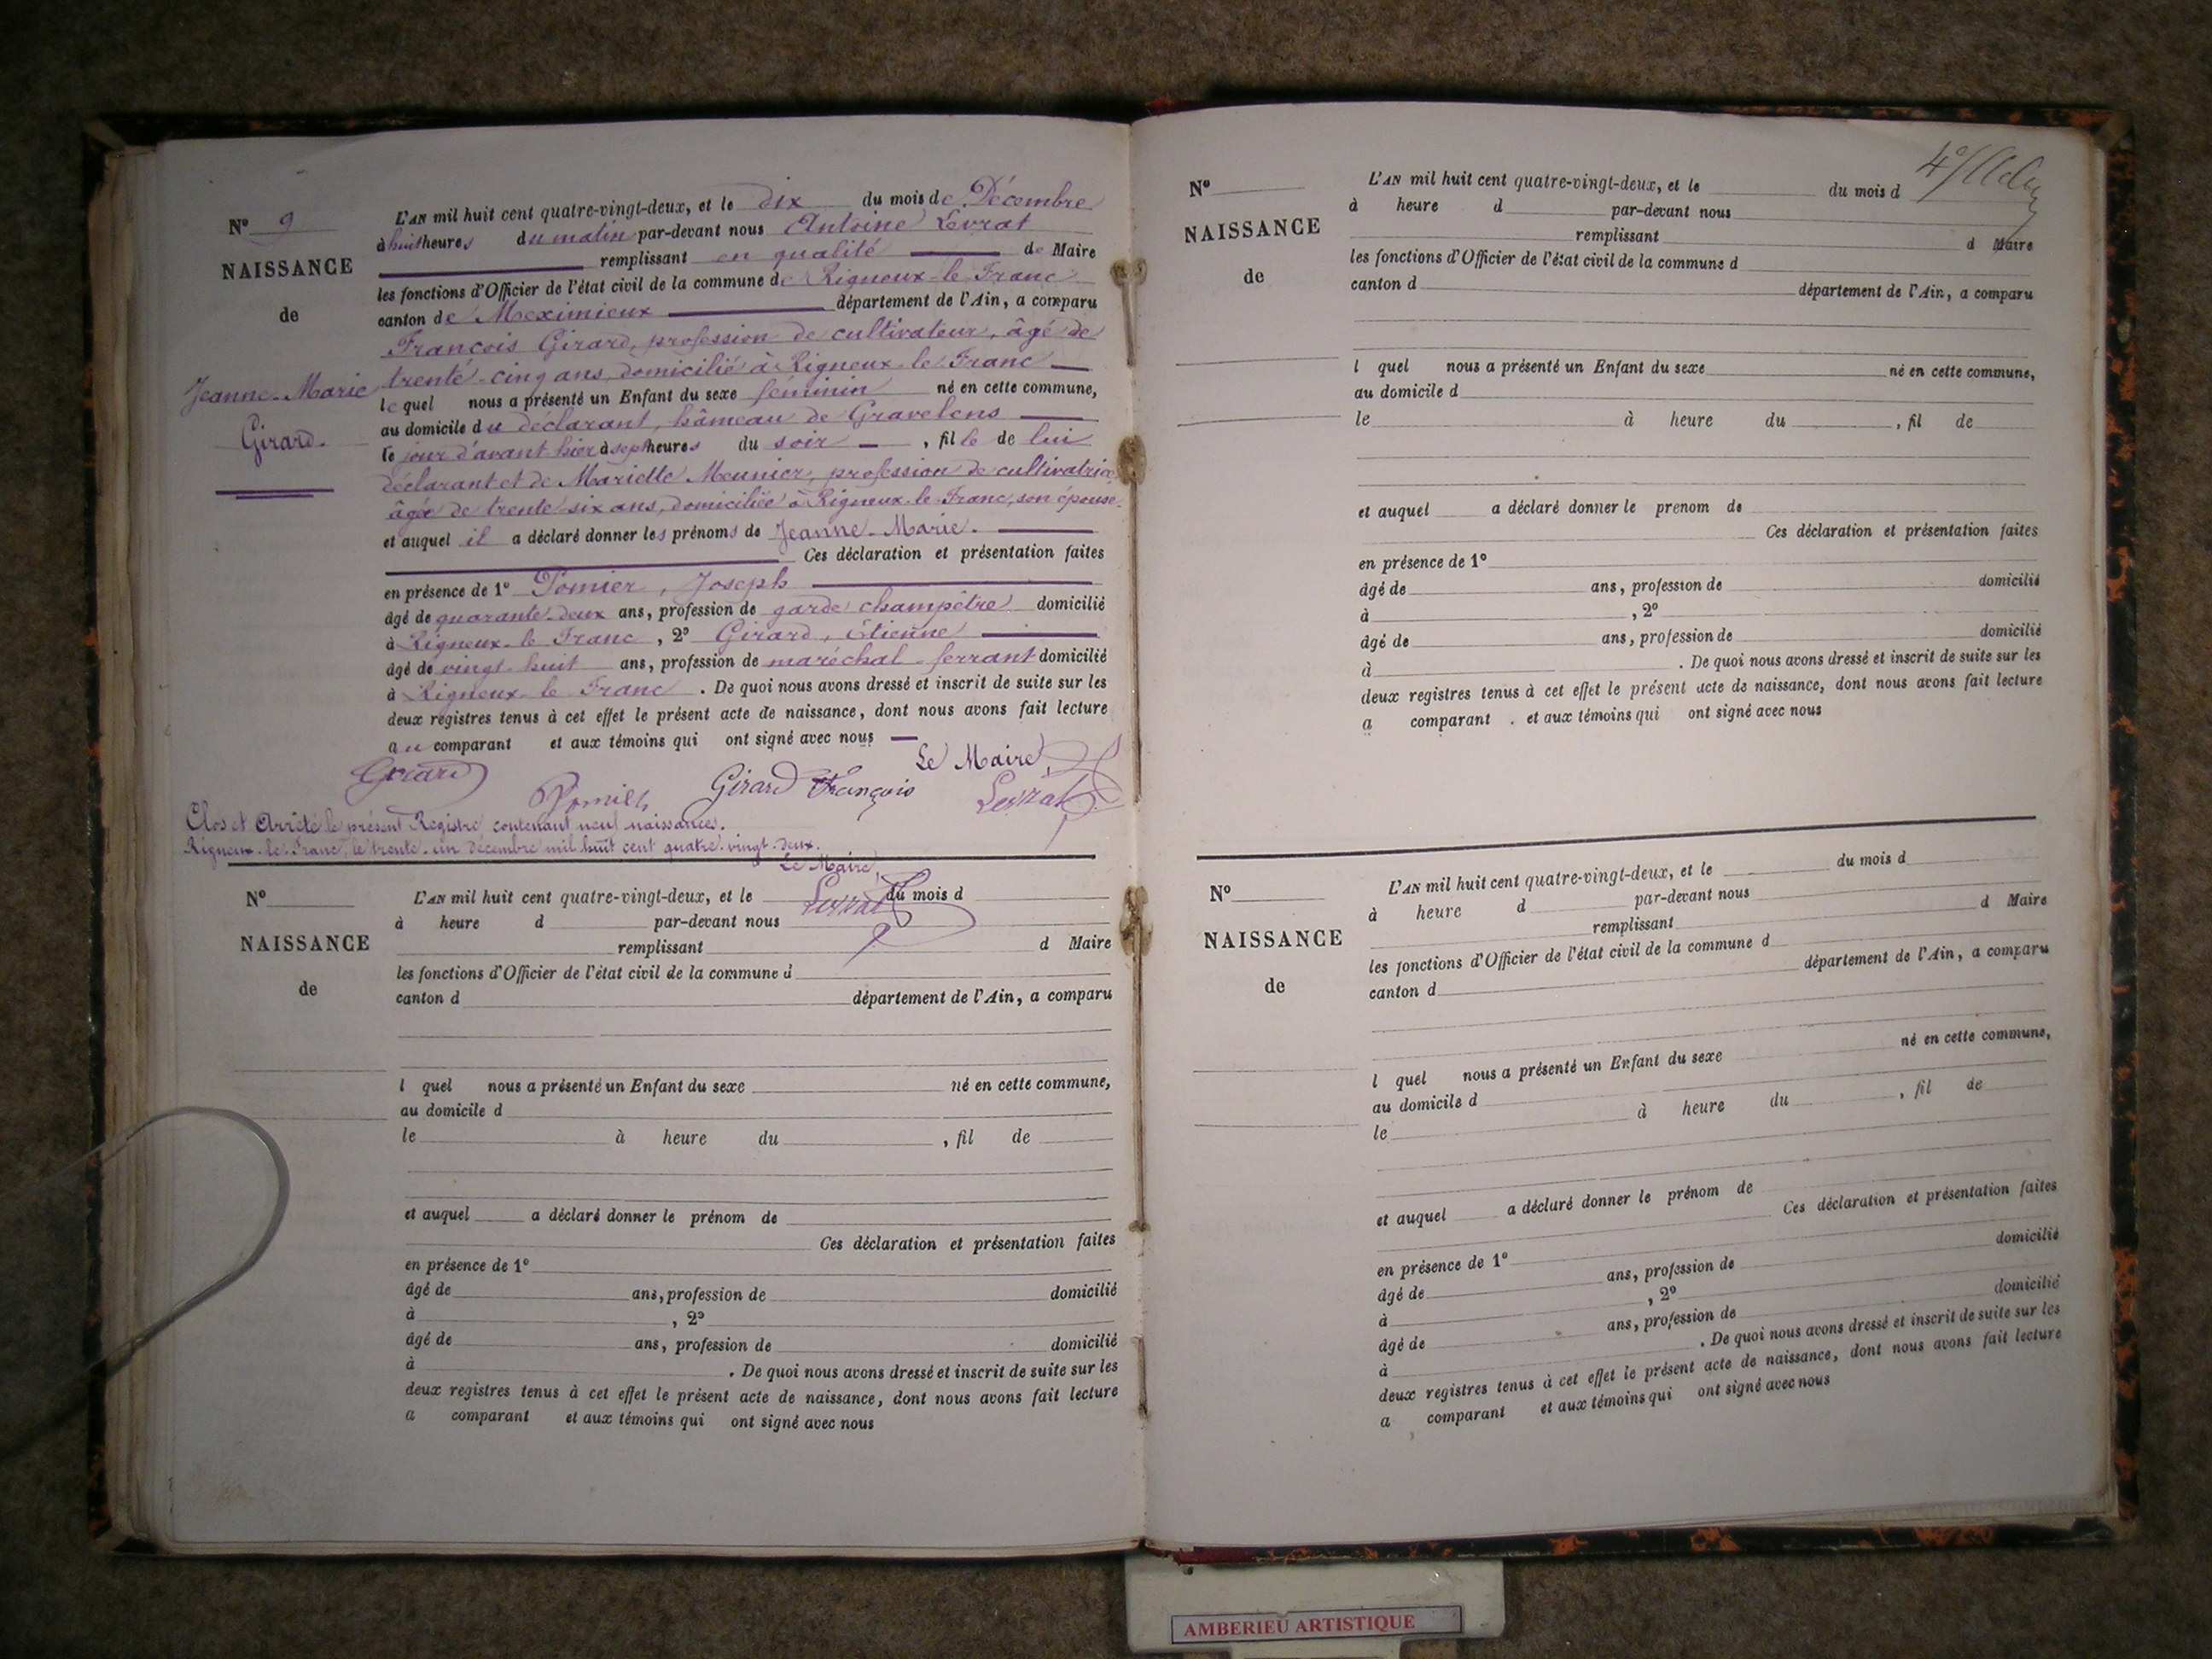 Nº 9
NAISSANCE
de
Jeanne-Marie
Girard.
L'AN mil huit cent quatre-vingt-deux, et le dix du mois de Décembre
à huit heures du matin par-devant nous Antoine Levrat
remplissant en qualité de Maire
les fonctions d'Officier de l'état civil de la commune de Rigneux-le-Franc
canton de Meximieux département de l'Ain, a comparu
François Girard, profession de cultivateur, âgé de
trente-cinq ans, domicilié à Rigneux-le-Franc
lequel nous a présenté un Enfant du sexe féminin né en cette commune,
au domicile du déclarant, hâmeau de Gravelens
le jour d'avant hier à sept heures du soir , fille de lui
déclarant et de Mariette Meunier, profession de cultivatrice
âgée de trente-six ans, domiciliée à Rigneux-le-Franc, son épouse.
et auquel il a déclaré donner les prénoms de Jeanne-Marie.
Ces déclaration et présentation faites
en présence de 1º Pomier, Joseph
âgé de quarante-deux ans, profession de garde champêtre domicilié
à Rigneux-le-Franc , 2º Girard, Étienne
âgé de vingt-huit ans, profession de maréchal-ferrant domicilié
à Rigneux-le-Franc . De quoi nous avons dressé et inscrit de suite sur les
deux registres tenus à cet effet le présent acte de naissance, dont nous avons fait lecture
au comparant et aux témoins qui ont signé avec nous
Le Maire,
Girard Girard François Levrat
Clos et Arrêté le présent Registre contenant neuf naissances.
Rigneux-le-Franc, le trente-un décembre mil huit cent quatre-vingt-deux.
Le Maire,
Levrat
Nº
NAISSANCE
de
L'AN mil huit cent quatre-vingt-deux, et le du mois d
à heure d par-devant nous
remplissant d Maire
les fonctions d'Officier de l'état civil de la commune d
canton d département de l'Ain, a comparu
l quel nous a présenté un Enfant du sexe né en cette commune,
au domicile d
le à heure du , fil de
et auquel a déclaré donner le prénom de
Ces déclaration et présentation faites
en présence de 1º
âgé de ans, profession de domicilié
à , 2º
âgé de ans, profession de domicilié
à . De quoi nous avons dressé et inscrit de suite sur les
deux registres tenus à cet effet le présent acte de naissance, dont nous avons fait lecture
a comparant et aux témoins qui ont signé avec nous
Nº
NAISSANCE
de
L'AN mil huit cent quatre-vingt-deux, et le du mois d
à heure d par-devant nous
remplissant d Maire
les fonctions d'Officier de l'état civil de la commune d
canton d département de l'Ain, a comparu
l quel nous a présenté un Enfant du sexe né en cette commune,
au domicile d
le à heure du , fil de
et auquel a déclaré donner le prenom de
Ces déclaration et présentation faites
en présence de 1º
âgé de ans, profession de domicilié
à , 2º
âgé de ans, profession de domicilié
à . De quoi nous avons dressé et inscrit de suite sur les
deux registres tenus à cet effet le présent acte de naissance, dont nous avons fait lecture
a comparant . et aux témoins qui ont signé avec nous
Nº
NAISSANCE
de
L'AN mil huit cent quatre-vingt-deux, et le du mois d
à heure d par-devant nous
remplissant d Maire
les fonctions d'Officier de l'état civil de la commune d
canton d département de l'Ain, a comparu
l quel nous a présenté un Enfant du sexe né en cette commune,
au domicile d
le à heure du , fil de
et auquel a déclaré donner le prénom de
Ces déclaration et présentation faites
en présence de 1º
âgé de ans, profession de domicilié
à , 2º
âgé de ans, profession de domicilié
à . De quoi nous avons dressé et inscrit de suite sur les
deux registres tenus à cet effet le présent acte de naissance, dont nous avons fait lecture
a comparant et aux témoins qui ont signé avec nous
AMBERIEU ARTISTIQUE